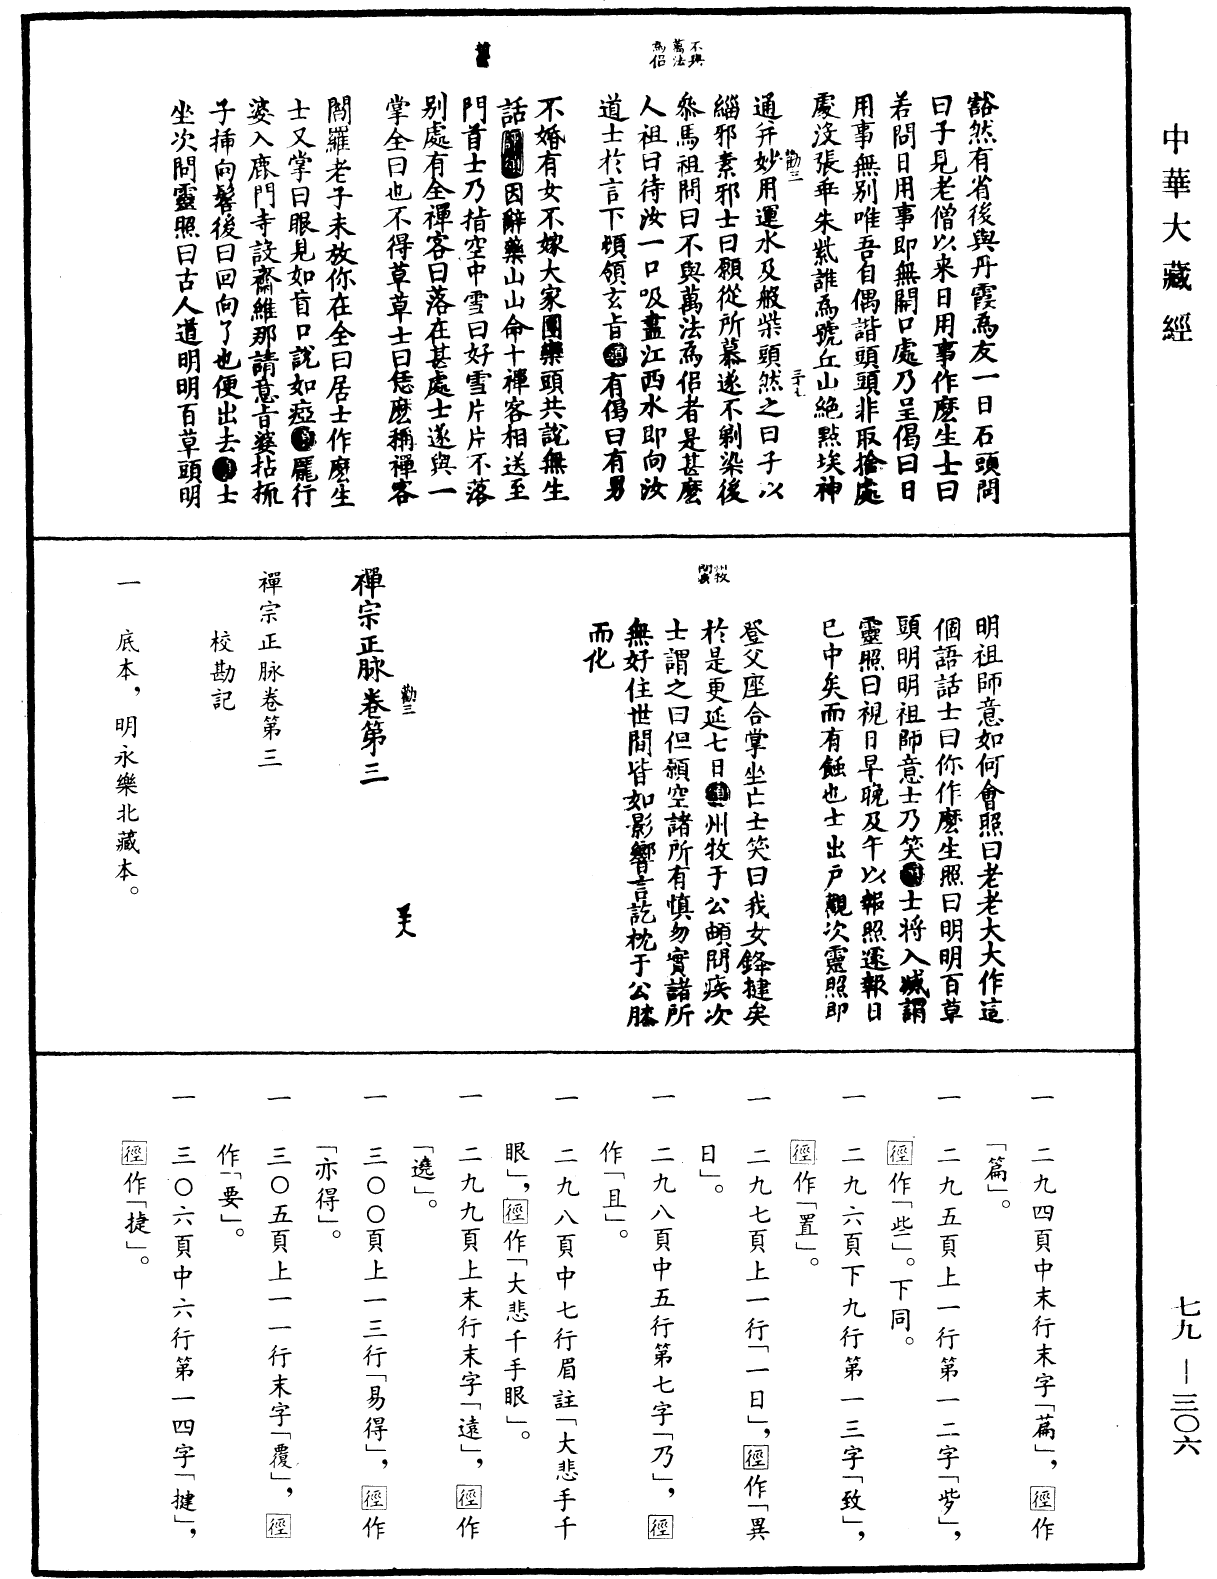 中華大藏經
不與萬法為侶
豁然有省後與丹霞為友一日石頭問
曰子見老僧以來日用事作麼生士曰
若問日用事即無開口處乃呈偈曰日
用事無別唯吾自偶諧頭頭非取捨處
處沒張乖朱紫誰為號丘山絕點埃神
通并妙用運水及般柴頭然之曰子以
緇邪素邪士曰願從所慕遂不剃染後
參馬祖問曰不與萬法為侶者是甚麼
人祖曰待汝一口吸盡江西水即向汝
道士於言下頓領玄旨有偈曰有男
不婚有女不嫁大家團欒頭共說無生
話因辭藥山山命十禪客相送至
門首士乃指空中雪曰好雪片片不落
別處有全禪客曰落在甚處士遂與一
掌全曰也不得草草士曰恁麼稱禪客
閻羅老子未放你在全曰居士作麼生
士又掌曰眼見如盲口說如瘂龐行
婆入鹿門寺設齋維那請意旨婆拈梳
子插向髻後曰回向了也便出去士
坐次問靈照曰古人道明明百草頭明
勸三
三十七
州牧問疾
明祖師意如何會照曰老老大大作這
個語話士曰你作麼生照曰明明百草
頭明明祖師意士乃笑士將入滅謂
靈照曰視日早晚及午以報照遽報日
已中矣而有蝕也士出戶觀次靈照即
登父座合掌坐亡士笑曰我女鋒捷矣
於是更延七日州牧于公頔問疾次
士謂之曰但願空諸所有慎勿實諸所
無好住世間皆如影響言訖枕于公膝
而化
禪宗正脉卷第三
勸三
禪宗正脉卷第三
校勘記
一 底本，明永樂北藏本。
一 二九四頁中末行末字「萹」，徑作
「篇」。
一 二九五頁上一行第一二字「呰」，
徑作「些」。下同。
一 二九六頁下九行第一三字「致」，
徑作「置」。
一 二九七頁上一行「一日」，徑作「異
日」。
一 二九八頁中五行第七字「乃」，徑
作「且」。
一 二九八頁中七行眉註「大悲手千
眼」，徑作「大悲千手眼」。
一 二九九頁上末行末字「遠」，徑作
「遶」。
一 三〇〇頁上一三行「易得」，徑作
「亦得」。
一 三〇五頁上一一行末字「覆」，徑
作「要」。
一 三〇六頁中六行第一四字「揵」，
徑作「捷」。
七九—三〇六